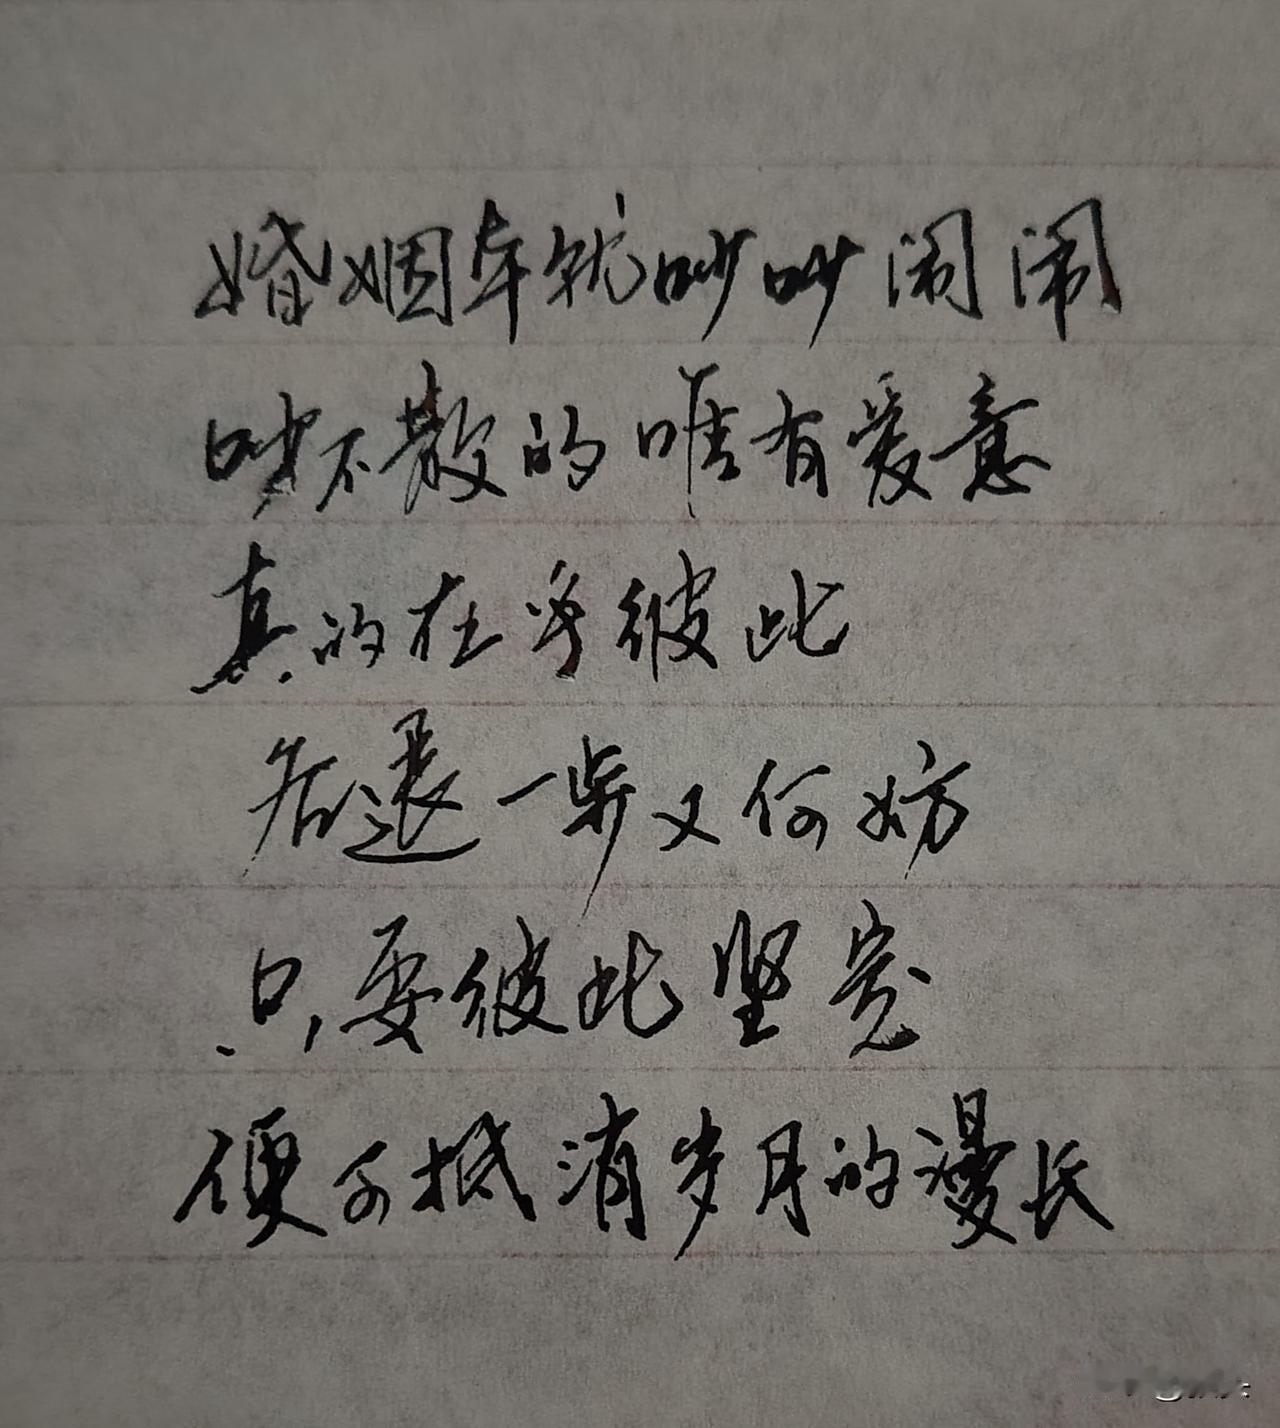 婚姻本就吵吵闹闹
吵不散的唯有爱意
真的在乎彼此
后退一步又何妨
只要彼此坚定
便可抵消岁月的漫长